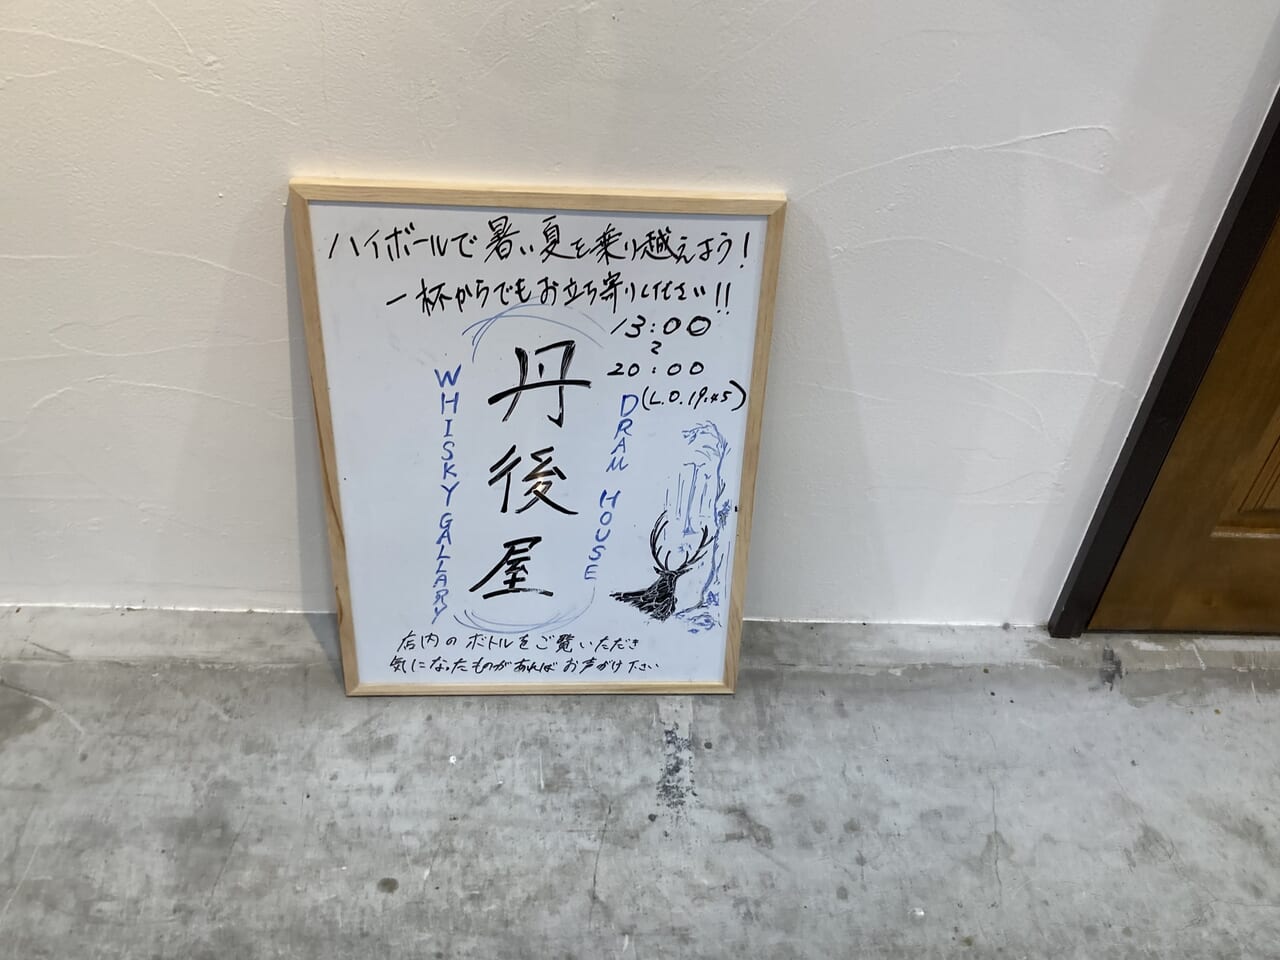 ハイボールで暑い夏を乗り越えよう!
一杯からでもお立ち寄りください!!
13:00
〜
20:00
(L.O.19.45)
丹後屋
WHISKY GALLARY
DRAM HOUSE
店内のボトルをご覧いただき
気になったものがあればお声がけ下さい